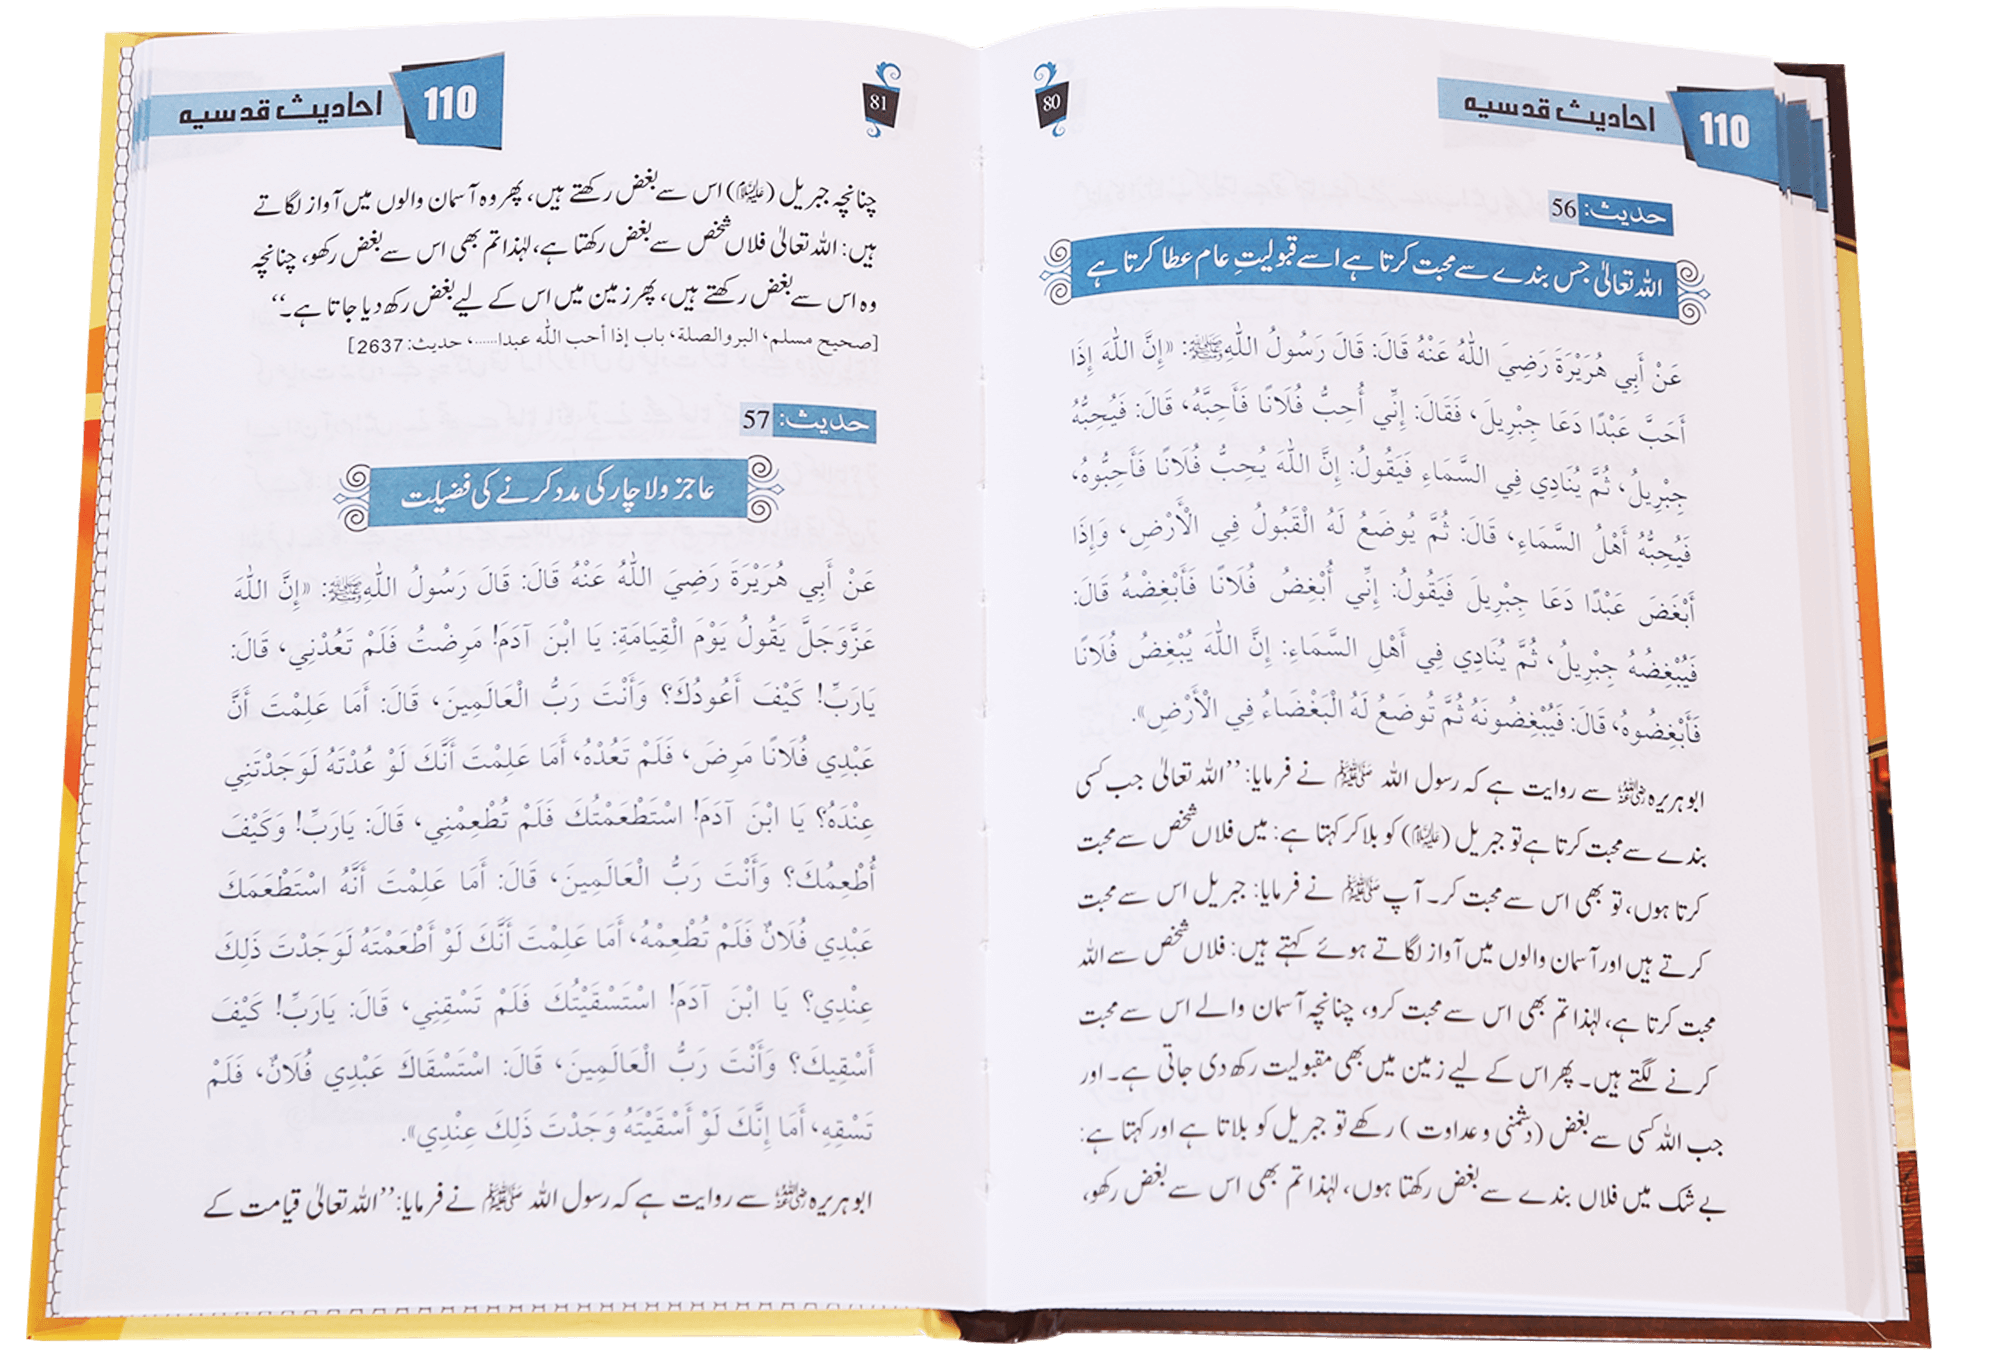 110 احادیث قدسیہ
80
حدیث: 56
اللہ تعالیٰ جس بندے سے محبت کرتا ہے اسے قبولیتِ عام عطا کرتا ہے
عَنْ أَبِي هُرَيْرَةَ رَضِيَ اللّٰهُ عَنْهُ قَالَ: قَالَ رَسُولُ اللّٰهِ ﷺ: «إِنَّ اللّٰهَ إِذَا
أَحَبَّ عَبْدًا دَعَا جِبْرِيلَ، فَقَالَ: إِنِّي أُحِبُّ فُلَانًا فَأَحِبَّهُ، قَالَ: فَيُحِبُّهُ
جِبْرِيلُ، ثُمَّ يُنَادِي فِي السَّمَاءِ فَيَقُولُ: إِنَّ اللّٰهَ يُحِبُّ فُلَانًا فَأَحِبُّوهُ،
فَيُحِبُّهُ أَهْلُ السَّمَاءِ، قَالَ: ثُمَّ يُوضَعُ لَهُ الْقَبُولُ فِي الْأَرْضِ، وَإِذَا
أَبْغَضَ عَبْدًا دَعَا جِبْرِيلَ فَيَقُولُ: إِنِّي أُبْغِضُ فُلَانًا فَأَبْغِضْهُ قَالَ:
فَيُبْغِضُهُ جِبْرِيلُ، ثُمَّ يُنَادِي فِي أَهْلِ السَّمَاءِ: إِنَّ اللّٰهَ يُبْغِضُ فُلَانًا
فَأَبْغِضُوهُ، قَالَ: فَيُبْغِضُونَهُ ثُمَّ تُوضَعُ لَهُ الْبَغْضَاءُ فِي الْأَرْضِ».
ابو ہریرہ رضی اللہ عنہ سے روایت ہے کہ رسول اللہ ﷺ نے فرمایا: ’’اللہ تعالیٰ جب کسی
بندے سے محبت کرتا ہے تو جبریل (علیہ السلام) کو بلا کر کہتا ہے: میں فلاں شخص سے محبت
کرتا ہوں، تو بھی اس سے محبت کر۔ آپ ﷺ نے فرمایا: جبریل اس سے محبت
کرتے ہیں اور آسمان والوں میں آواز لگاتے ہوئے کہتے ہیں: فلاں شخص سے اللہ
محبت کرتا ہے، لہٰذا تم بھی اس سے محبت کرو، چنانچہ آسمان والے اس سے محبت
کرنے لگتے ہیں۔ پھر اس کے لیے زمین میں بھی مقبولیت رکھ دی جاتی ہے۔ اور
جب اللہ کسی سے بغض (دشمنی و عداوت) رکھے تو جبریل کو بلاتا ہے اور کہتا ہے:
بے شک میں فلاں بندے سے بغض رکھتا ہوں، لہٰذا تم بھی اس سے بغض رکھو،
110 احادیث قدسیہ
81
چنانچہ جبریل (علیہ السلام) اس سے بغض رکھتے ہیں، پھر وہ آسمان والوں میں آواز لگاتے
ہیں: اللہ تعالیٰ فلاں شخص سے بغض رکھتا ہے، لہٰذا تم بھی اس سے بغض رکھو، چنانچہ
وہ اس سے بغض رکھتے ہیں، پھر زمین میں اس کے لیے بغض رکھ دیا جاتا ہے۔‘‘
[صحیح مسلم، البر والصلة، باب إذا أحب اللّٰه عبدا......، حدیث: 2637]
حدیث: 57
عاجز ولاچار کی مدد کرنے کی فضیلت
عَنْ أَبِي هُرَيْرَةَ رَضِيَ اللّٰهُ عَنْهُ قَالَ: قَالَ رَسُولُ اللّٰهِ ﷺ: «إِنَّ اللّٰهَ
عَزَّوَجَلَّ يَقُولُ يَوْمَ الْقِيَامَةِ: يَا ابْنَ آدَمَ! مَرِضْتُ فَلَمْ تَعُدْنِي، قَالَ:
يَارَبِّ! كَيْفَ أَعُودُكَ؟ وَأَنْتَ رَبُّ الْعَالَمِينَ، قَالَ: أَمَا عَلِمْتَ أَنَّ
عَبْدِي فُلَانًا مَرِضَ، فَلَمْ تَعُدْهُ، أَمَا عَلِمْتَ أَنَّكَ لَوْ عُدْتَهُ لَوَجَدْتَنِي
عِنْدَهُ؟ يَا ابْنَ آدَمَ! اسْتَطْعَمْتُكَ فَلَمْ تُطْعِمْنِي، قَالَ: يَارَبِّ! وَكَيْفَ
أُطْعِمُكَ؟ وَأَنْتَ رَبُّ الْعَالَمِينَ، قَالَ: أَمَا عَلِمْتَ أَنَّهُ اسْتَطْعَمَكَ
عَبْدِي فُلَانٌ فَلَمْ تُطْعِمْهُ، أَمَا عَلِمْتَ أَنَّكَ لَوْ أَطْعَمْتَهُ لَوَجَدْتَ ذَلِكَ
عِنْدِي؟ يَا ابْنَ آدَمَ! اسْتَسْقَيْتُكَ فَلَمْ تَسْقِنِي، قَالَ: يَارَبِّ! كَيْفَ
أَسْقِيكَ؟ وَأَنْتَ رَبُّ الْعَالَمِينَ، قَالَ: اسْتَسْقَاكَ عَبْدِي فُلَانٌ، فَلَمْ
تَسْقِهِ، أَمَا إِنَّكَ لَوْ أَسْقَيْتَهُ وَجَدْتَ ذَلِكَ عِنْدِي».
ابو ہریرہ رضی اللہ عنہ سے روایت ہے کہ رسول اللہ ﷺ نے فرمایا: ’’اللہ تعالیٰ قیامت کے